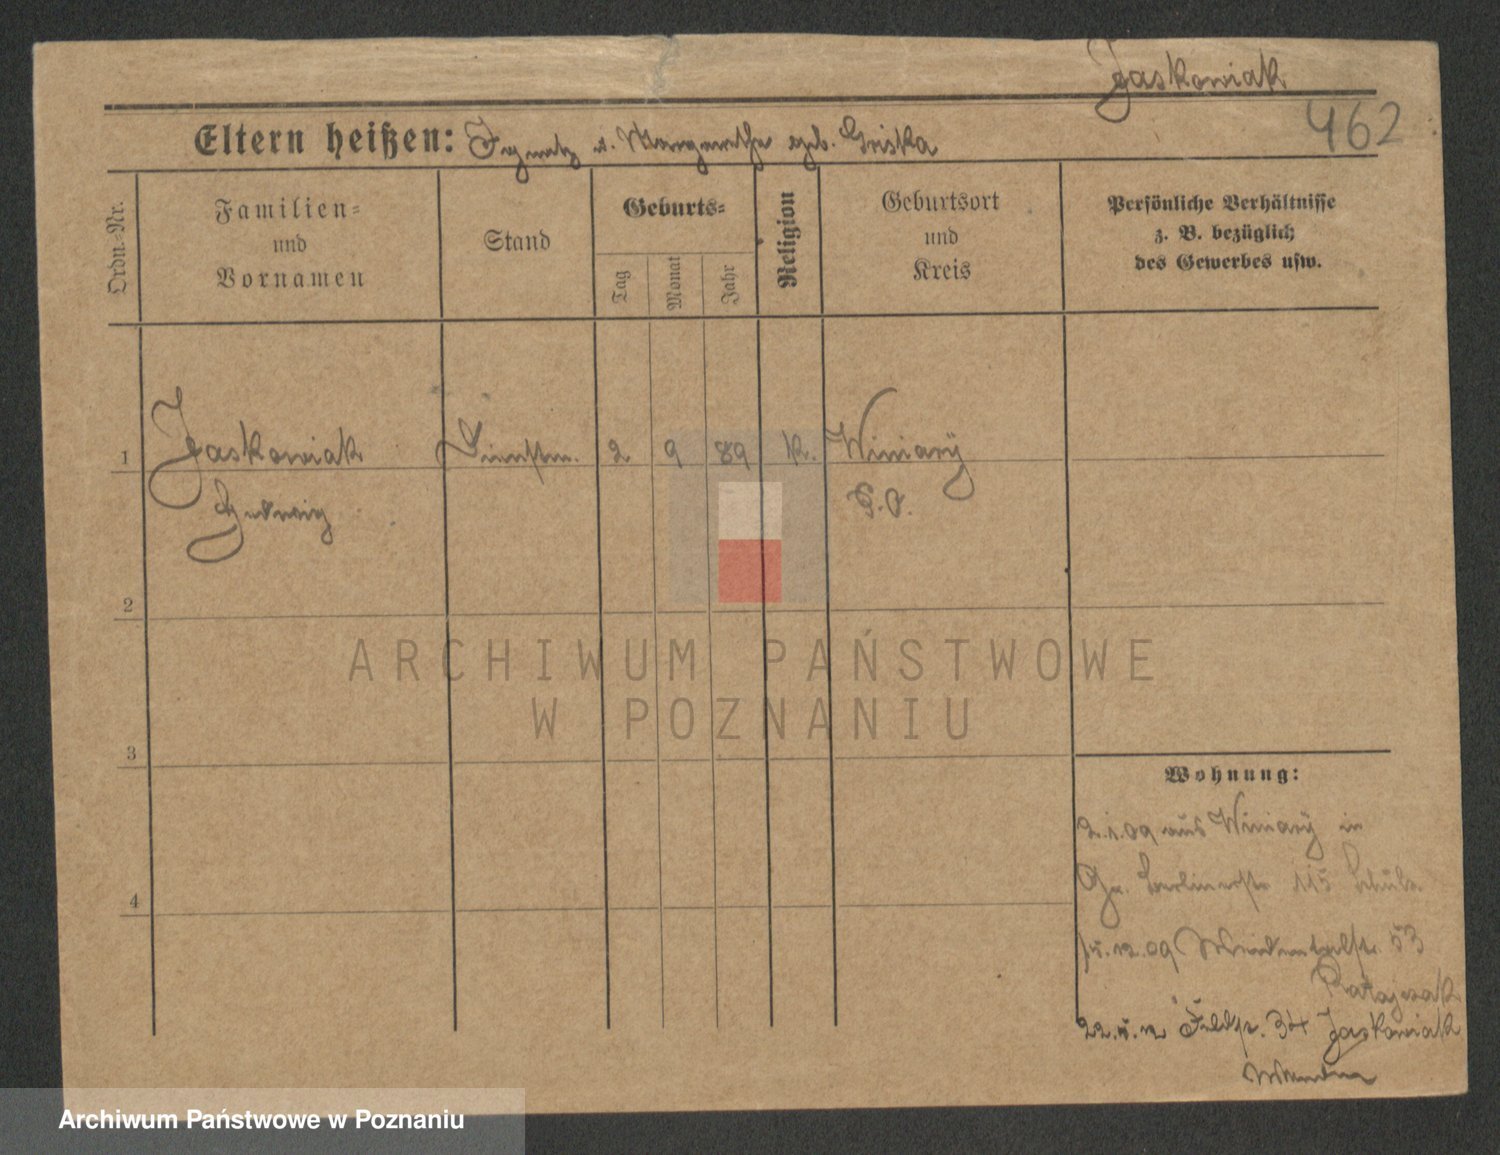 Jaskowiak
462
Eltern heißen: Ignatz u. Margarethe geb. Griska
Ordn.-Nr.
Familien-
und
Vornamen
Stand
Geburts-
Tag
Monat
Jahr
Religion
Geburtsort
und
Kreis
Persönliche Verhältnisse
z. B. bezüglich
des Gewerbes usw.
1 Jaskowiak Dienstm. 2 9 89 K. Winiary
Hedwig P.O.
2
3
4
ARCHIWUM PAŃSTWOWE
W POZNANIU
Wohnung:
2.1.09 aus Winiary in
Gr. Berlinerstr 115
09 53
Ratajczak
22. 34 Jaskowiak
Archiwum Państwowe w Poznaniu